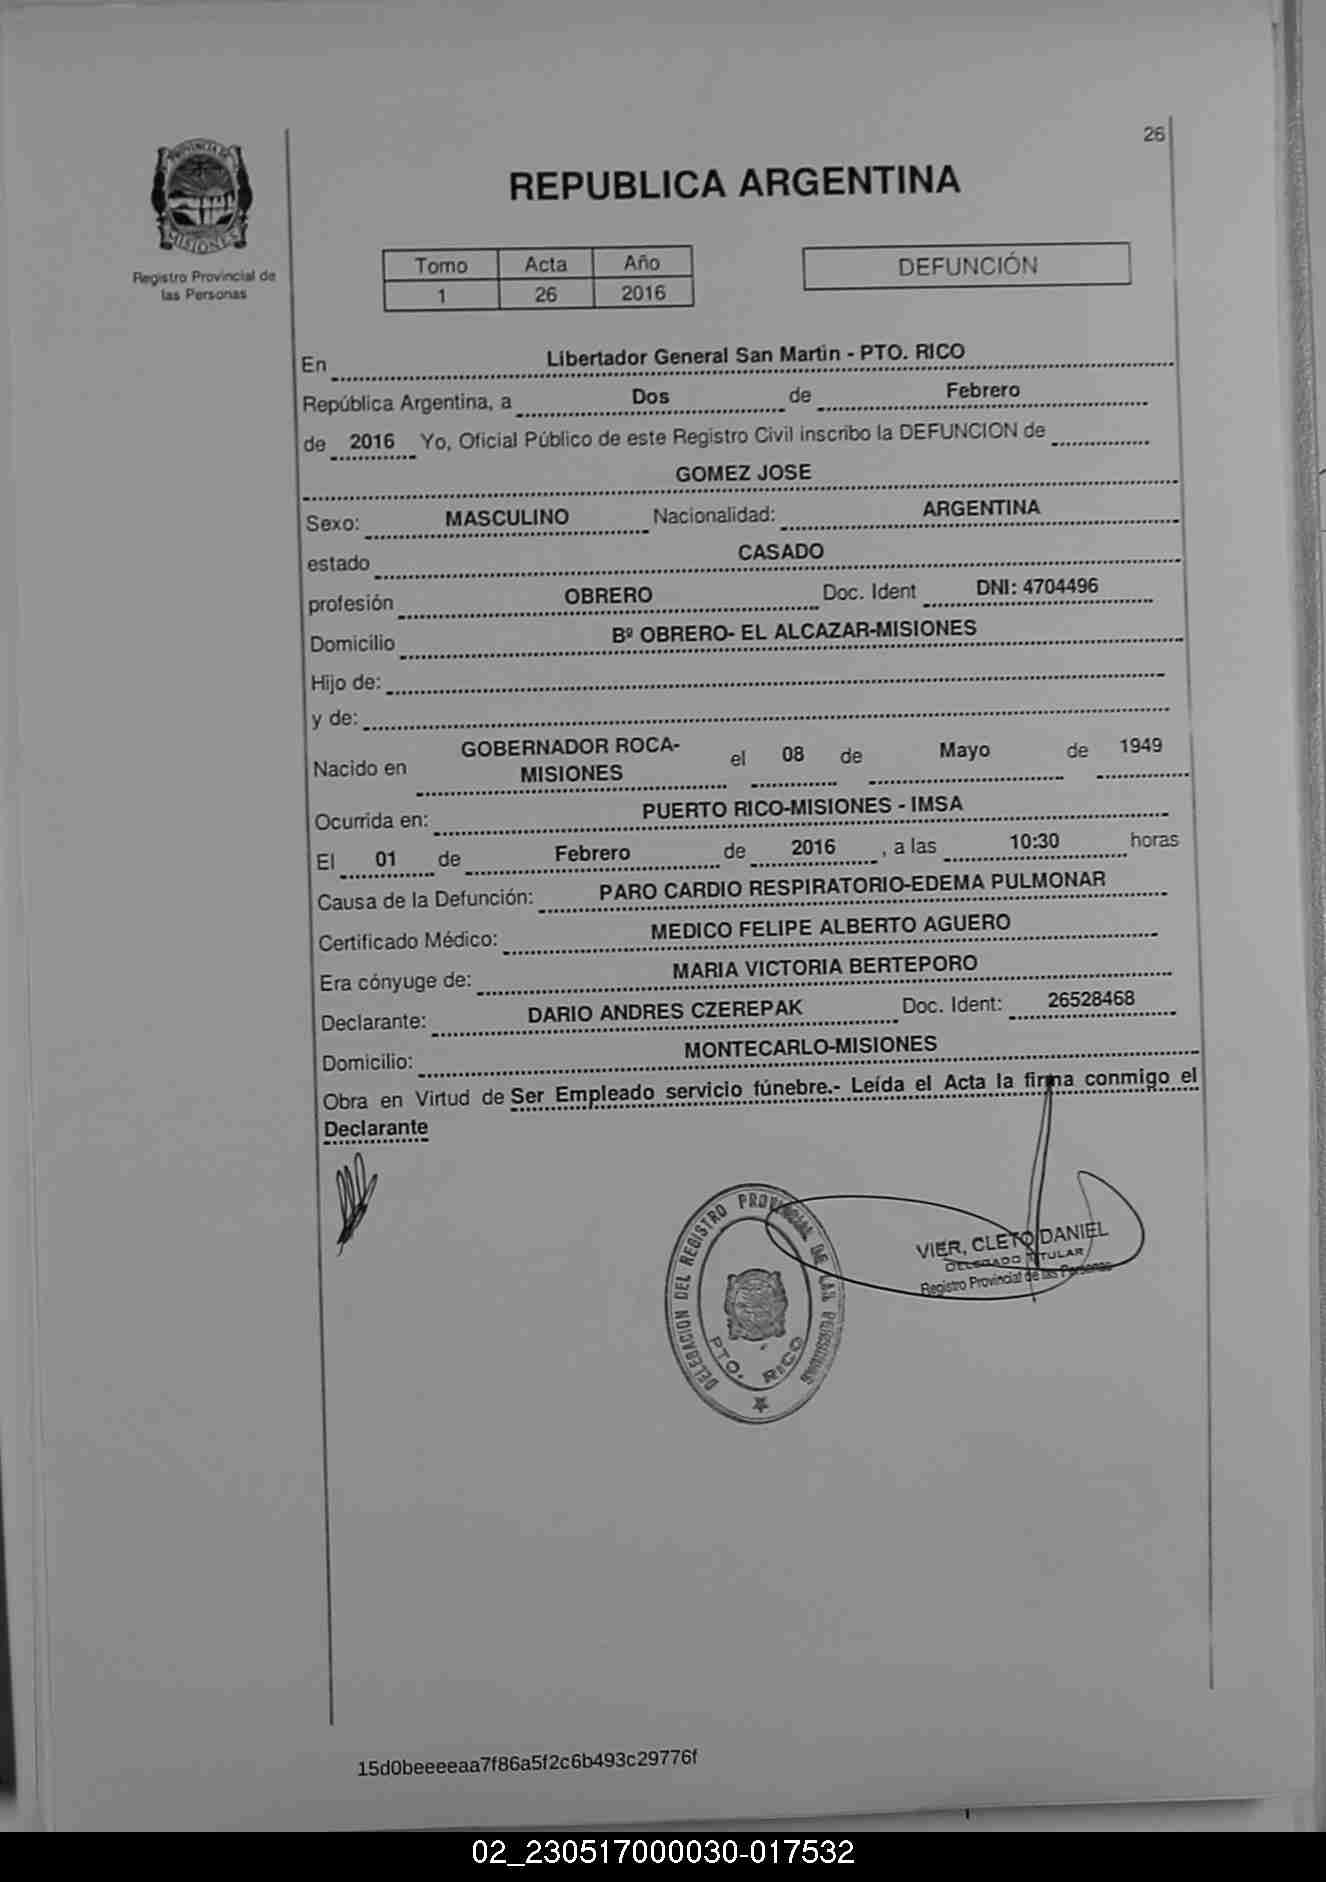 26
PROVINCIA DE
MISIONES
Registro Provincial de
las Personas
REPUBLICA ARGENTINA
Tomo Acta Año
1 26 2016
DEFUNCIÓN
En Libertador General San Martin - PTO. RICO
República Argentina, a Dos de Febrero
de 2016 Yo, Oficial Público de este Registro Civil inscribo la DEFUNCION de
GOMEZ JOSE
Sexo: MASCULINO Nacionalidad: ARGENTINA
estado CASADO
profesión OBRERO Doc. Ident DNI: 4704496
Domicilio Bº OBRERO- EL ALCAZAR-MISIONES
Hijo de:
y de:
Nacido en GOBERNADOR ROCA-
MISIONES el 08 de Mayo de 1949
Ocurrida en: PUERTO RICO-MISIONES - IMSA
El 01 de Febrero de 2016 , a las 10:30 horas
Causa de la Defunción: PARO CARDIO RESPIRATORIO-EDEMA PULMONAR
Certificado Médico: MEDICO FELIPE ALBERTO AGUERO
Era cónyuge de: MARIA VICTORIA BERTEPORO
Declarante: DARIO ANDRES CZEREPAK Doc. Ident: 26528468
Domicilio: MONTECARLO-MISIONES
Obra en Virtud de Ser Empleado servicio fúnebre.- Leída el Acta la firma conmigo el
Declarante
DELEGACION DEL REGISTRO PROVINCIAL DE LAS PERSONAS
PTO. RICO
VIER, CLETO DANIEL
DELEGADO TITULAR
Registro Provincial de las Personas
15d0beeeeaa7f86a5f2c6b493c29776f
02_230517000030-017532